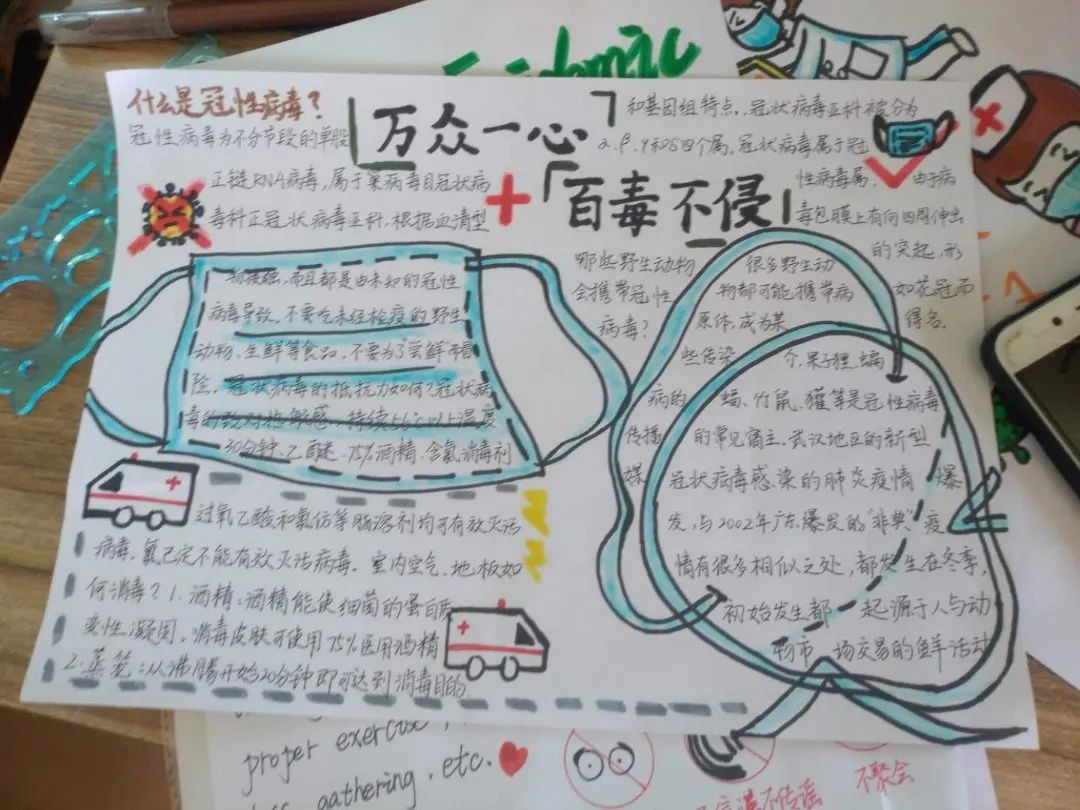 什么是冠性病毒?
冠性病毒为不分节段的单股
正链RNA病毒,属于巢病毒目冠状病
毒科正冠状病毒亚科,根据血清型
万众一心
百毒不侵
和基因组特点,冠状病毒亚科被分为
α.β.γ和δ四个属,冠状病毒属于冠
性病毒属, 由于病
毒包膜上有向四周伸出
的突起,形
如花冠而
得名.
物接触,而且都是由未知的冠性
病毒导致,不要吃未经检疫的野生
动物、生鲜等食品,不要为了尝鲜而冒
险,冠状病毒的抵抗力如何?冠状病
毒的致对热敏感,持续56℃以上温度
30分钟、乙醚、75%酒精、含氯消毒剂
过氧乙酸和氯仿等脂溶剂均可有放灭活
病毒,氯己定不能有效灭活病毒,室内空气、地板如
何消毒?1.酒精:酒精能使细菌的蛋白质
变性凝固,消毒皮肤可使用75%医用酒精
2.蒸笼:从沸腾开始20分钟即可达到消毒目的
哪些野生动物
会携带冠性
病毒?
很多野生动
物都可能携带病
原体,成为某
些传染 介,果子狸、蝙
病的 蝠、竹鼠、獾等是冠性病毒
传播 的常见宿主,武汉地区的新型
媒 冠状病毒感染的肺炎疫情 爆
发,与2002年广东爆发的"非典"疫
情有很多相似之处,都发生在冬季,
初始发生都一起源于人与动
物市 场交易的鲜活动
proper exercise
gathering, etc.
不传谣
不聚会